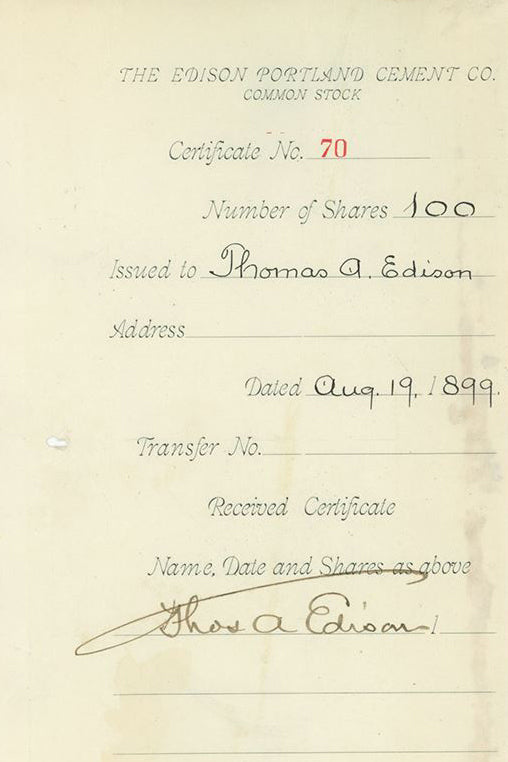 THE EDISON PORTLAND CEMENT CO.
COMMON STOCK
Certificate No. 70
Number of Shares 100
Issued to Thomas A. Edison
Address
Dated Aug. 19, 1899.
Transfer No.
Received Certificate
Name, Date and Shares as above
Thos A Edison